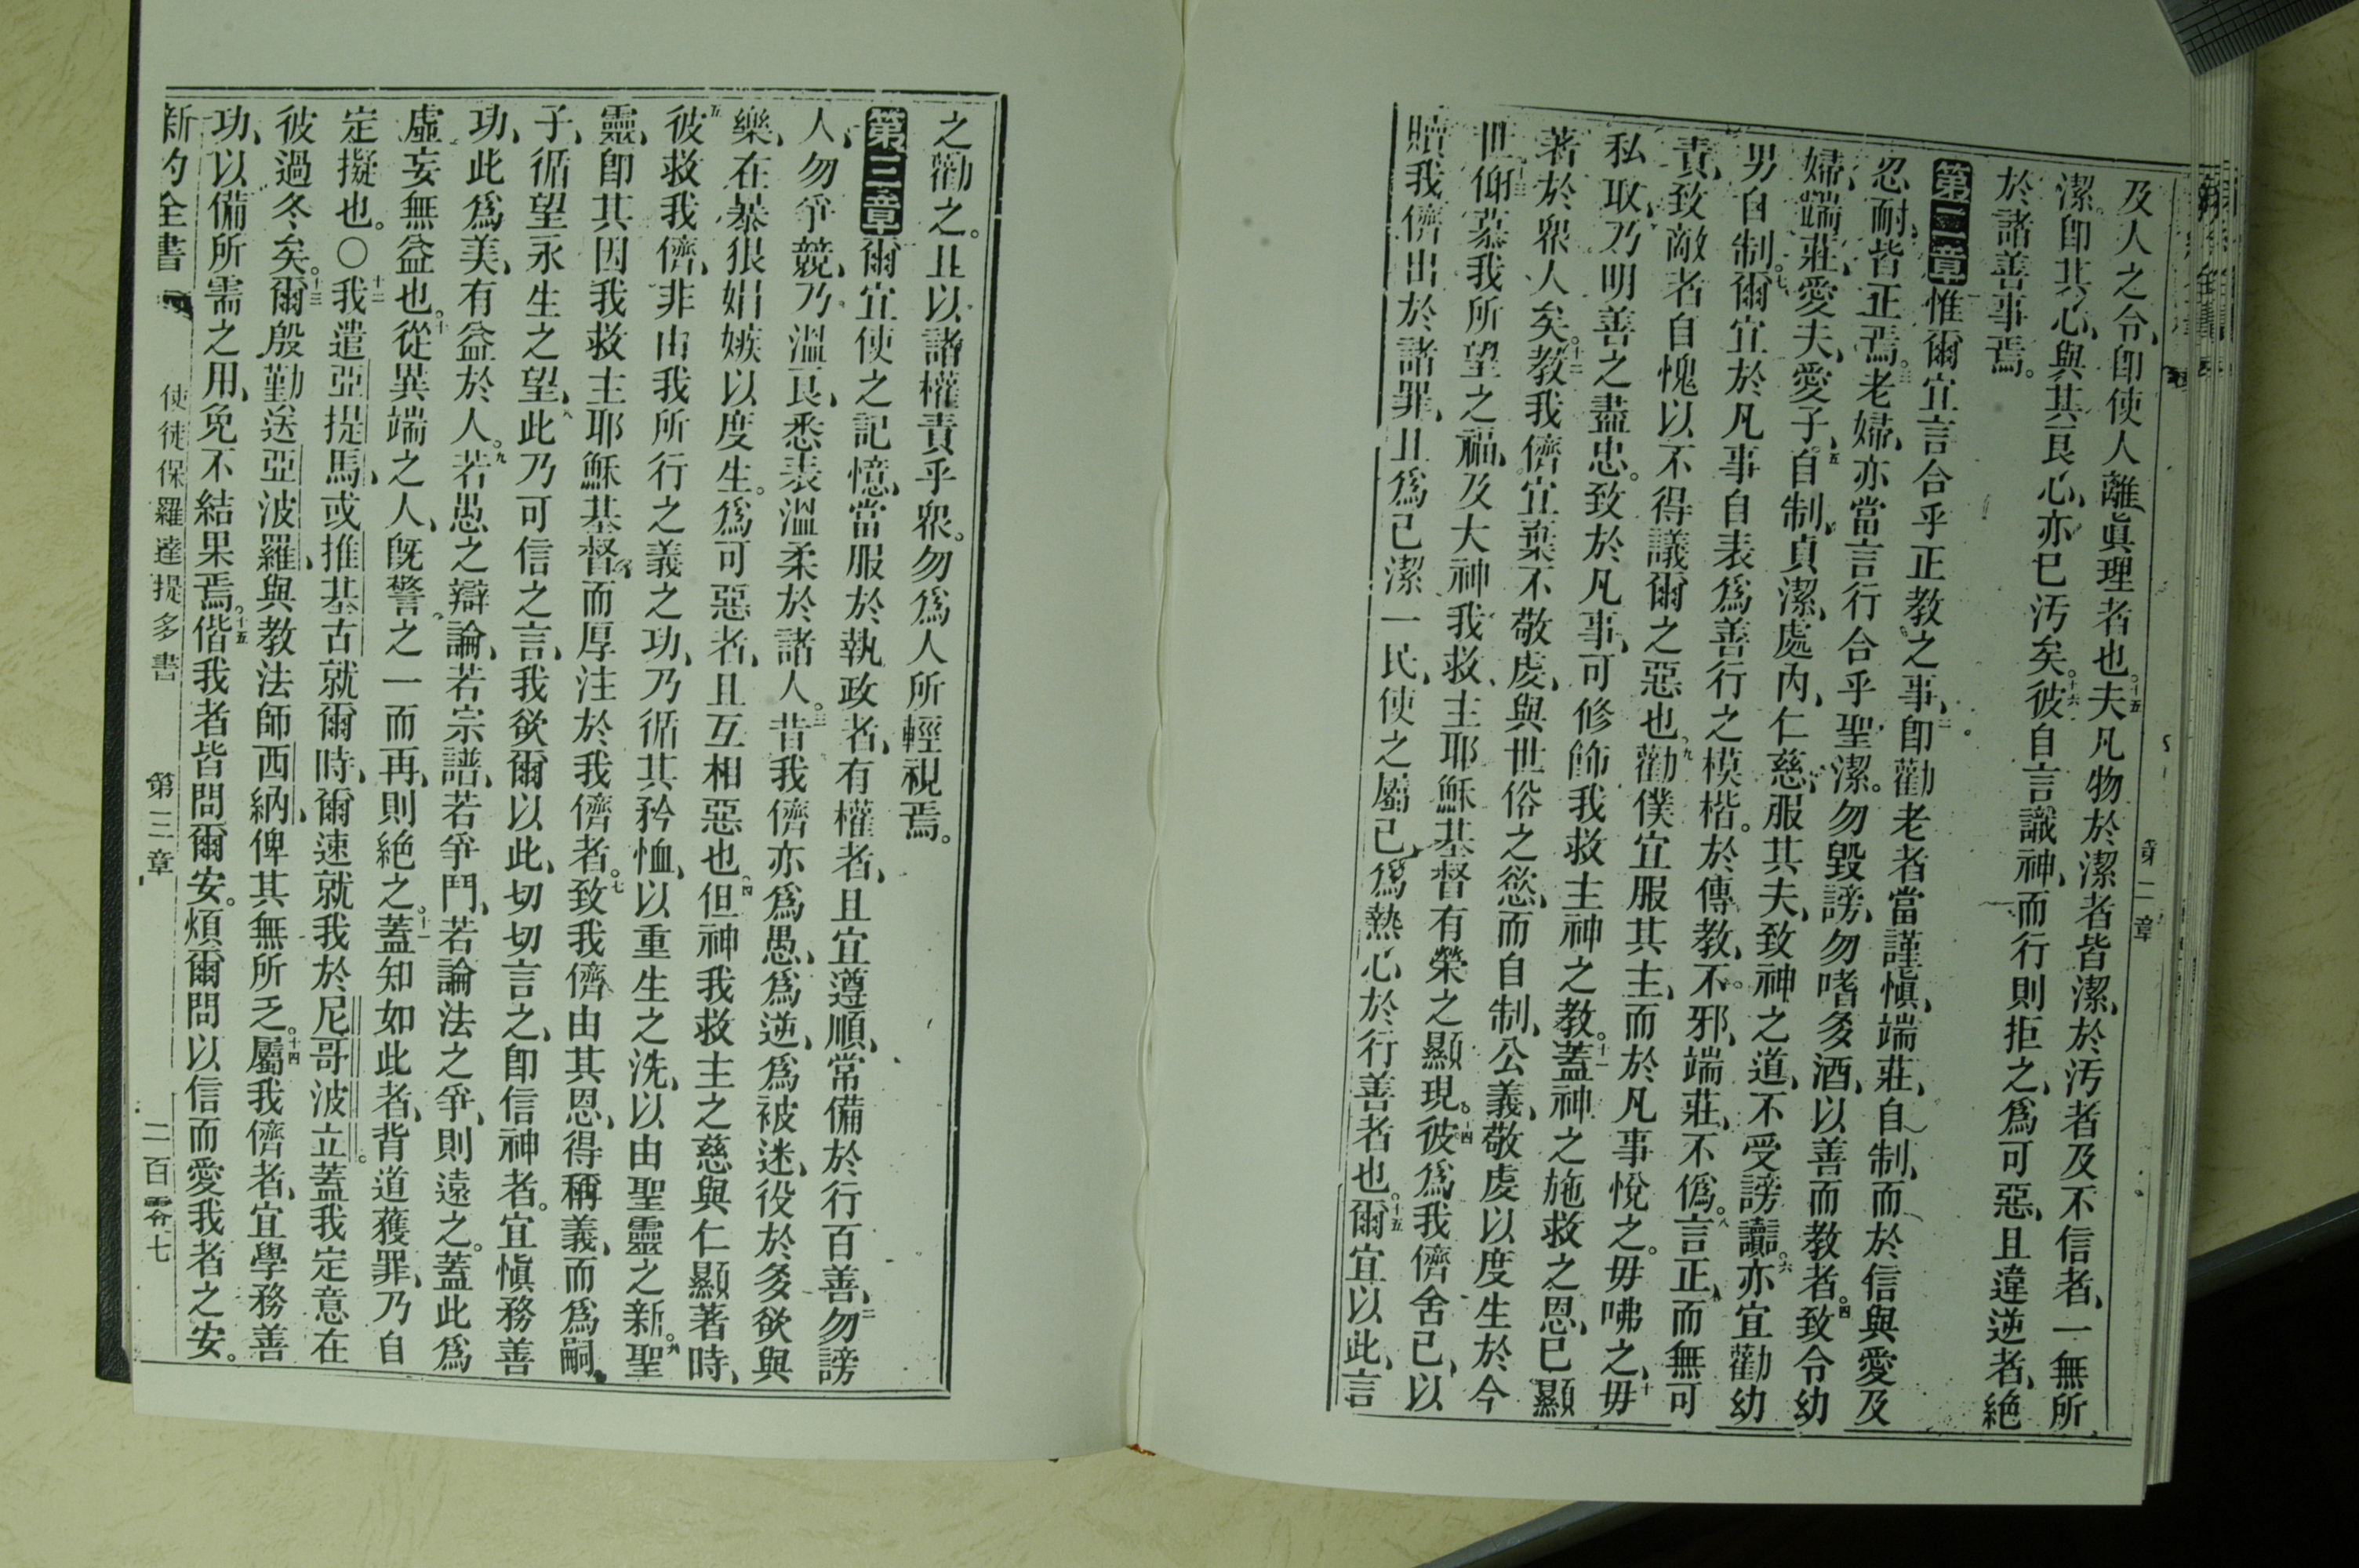 第二章
及人之令、卽使人離眞理者也。十五夫凡物於潔者皆潔、於污者及不信者、一無所
潔。卽其心、與其良心、亦已污矣。十六彼自言識神、而行則拒之、爲可惡、且違逆者、絕
於諸善事焉。
第二章惟爾宜言合乎正教之事、二卽勸老者當謹愼、端莊、自制、而於信與愛及
忍耐、皆正焉。三老婦、亦當言行合乎聖潔。勿毀謗、勿嗜多酒、以善而教者。四致令幼
婦、端莊、愛夫、愛子、五自制、貞潔、處內、仁慈、服其夫、致神之道、不受謗讟。六亦宜勸幼
男自制。七爾宜於凡事自表爲善行之模楷。於傳教、不邪、端莊、不僞。八言正、而無可
責、致敵者自愧以不得議爾之惡也。九勸僕宜服其主、而於凡事悅之。毋咈之、十毋
私取、乃明善之盡忠。致於凡事、可修飾我救主神之教。十一蓋神之施救之恩、已顯
著於眾人矣。十二教我儕宜棄不敬虔、與世俗之慾、而自制、公義、敬虔以度生於今
世。十三仰慕我所望之福、及大神我救主耶穌基督有榮之顯現。十四彼爲我儕舍己、以
贖我儕出於諸罪、且爲己潔一民、使之屬己、爲熱心於行善者也。十五爾宜以此、言
之勸之。且以諸權責乎眾。勿爲人所輕視焉。
第三章爾宜使之記憶、當服於執政者、有權者、且宜遵順、常備於行百善、二勿謗
人、勿爭競、乃溫良、悉表溫柔於諸人。三昔我儕亦爲愚、爲逆、爲被迷、役於多欲與
樂、在暴狠娼嫉以度生。爲可惡者、且互相惡也。四但神我救主之慈與仁顯著時、
五彼救我儕、非由我所行之義之功、乃循其矜恤、以重生之洗、以由聖靈之新。六聖
靈、卽其因我救主耶穌基督、而厚注於我儕者。七致我儕由其恩、得稱義、而爲嗣
子、循望永生之望、八此乃可信之言、我欲爾以此、切切言之、卽信神者。宜愼務善
功、此爲美、有益於人。九若愚之辯論、若宗譜、若爭鬥、若論法之爭、則遠之。蓋此爲
虛妄無益也。十從異端之人、旣警之一而再、則絕之。十一蓋知如此者、背道獲罪、乃自
定擬也。〇十二我遣亞提馬、或推基古就爾時、爾速就我於尼哥波立。蓋我定意在
彼過冬矣。十三爾殷勤送亞波羅、與教法師西納、俾其無所乏。十四屬我儕者、宜學務善
功、以備所需之用、免不結果焉。十五偕我者皆問爾安。煩爾問以信而愛我者之安。
新約全書 使徒保羅達提多書 第三章 二百零七